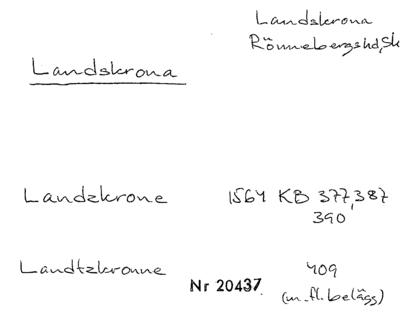 Landskrona
Rönnebergshd, Sk
Landskrona
Landzkrone 1564 KB 377, 387
390
Landtzkronne 409
Nr 20437 (m.fl. belägg)